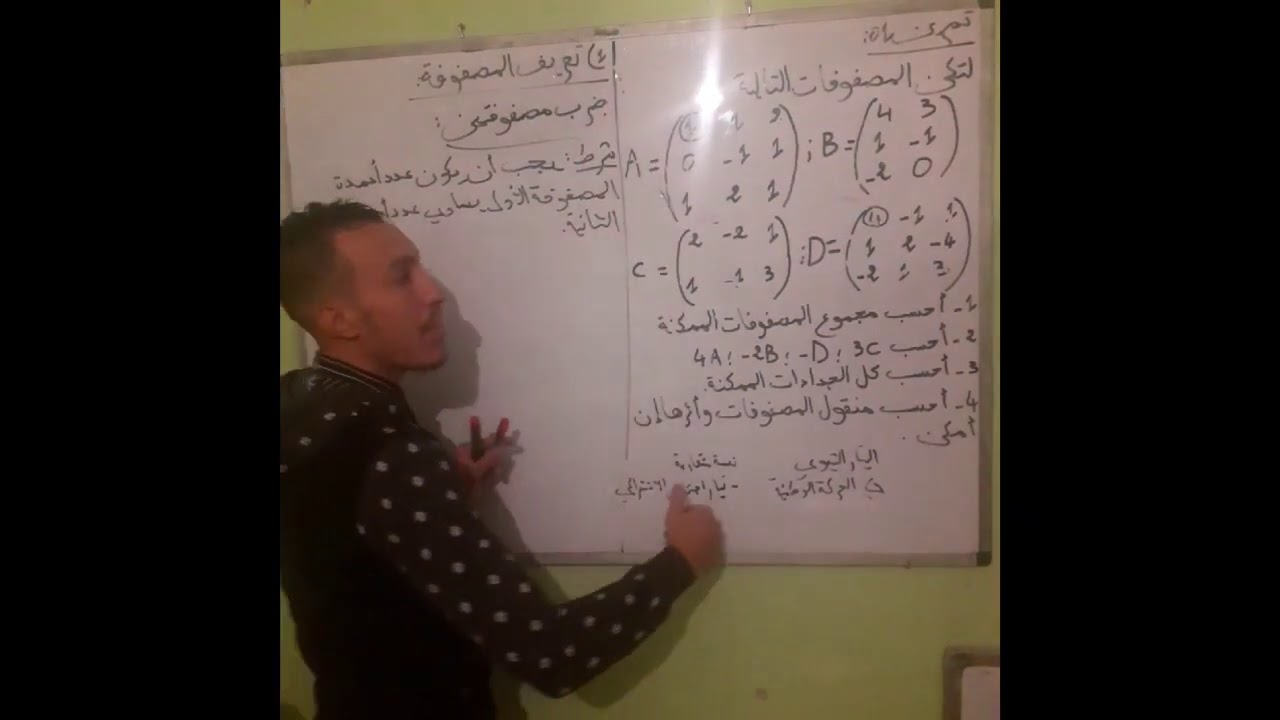 تمرين
لتكن المصفوفات التالية
A = ( 1 2
0 -1 1
1 2 1 ) ; B = ( 4 3
1 -1
-2 0 )
C = ( 2 -2 1
1 -1 3 ) ; D = ( -1 1
1 2 -4
-2 1 3 )
1- أحسب مجموع المصفوفات الممكنة
2- أحسب 3C ; -D ; -2B ; 4A
3- أحسب كل الجداءات الممكنة.
4- أحسب منقول المصفوفات وأثرها إن
أمكن.
الحركة الوطنية
1) تعريف المصفوفة:
ضرب مصفوفتين:
شرط: يجب أن يكون عدد أعمدة
المصفوفة الأولى يساوي عدد
الثانية.